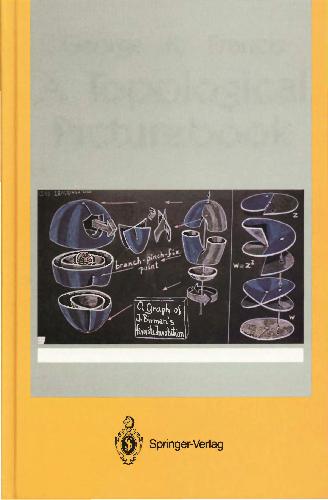 George K. Francis
A Topological
Picturebook
branch-pinch-fix
point
A Graph of
J. Birman's
z
w = z²
w
Springer-Verlag